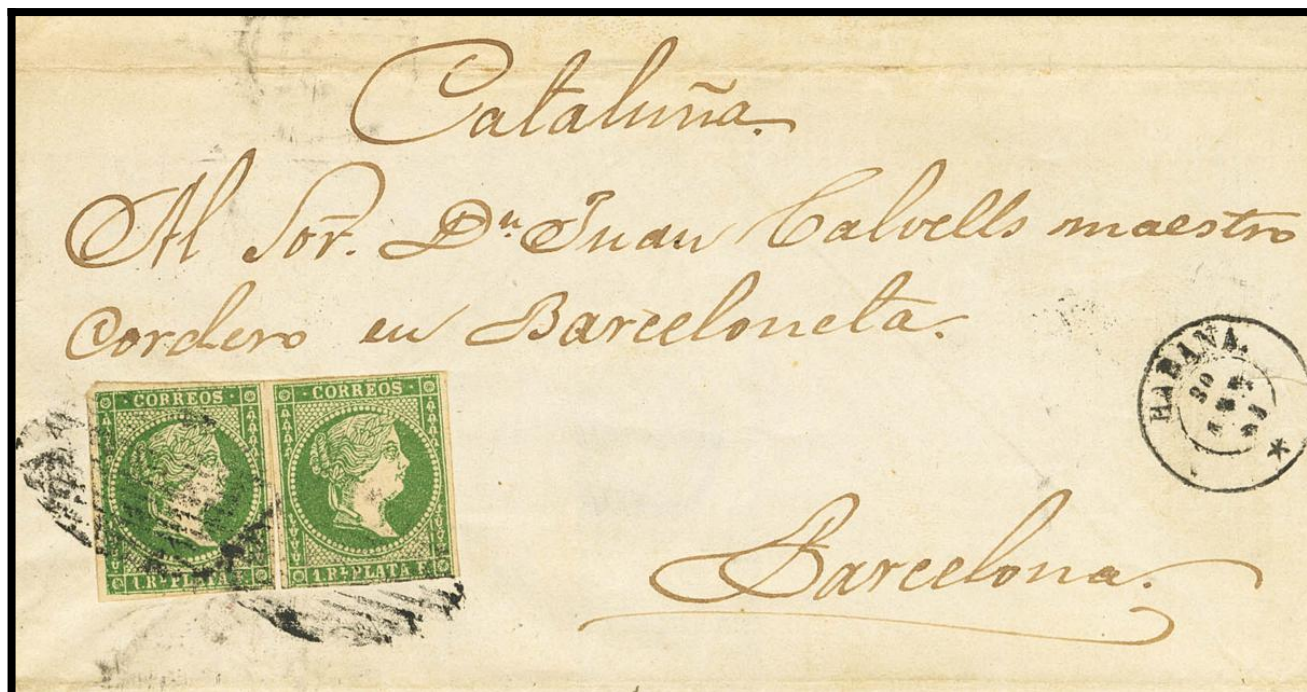 Cataluña.
Al Sor. Dn Juan Calvells maestro
Cordero en Barceloneta.
CORREOS CORREOS
1 Rl. PLATA F. 1 Rl. PLATA F.
HABANA.
30
Barcelona.